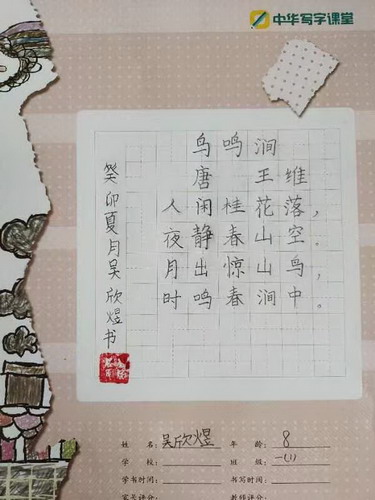 中华写字课堂
鸟鸣涧
唐 王维
人闲桂花落，
夜静春山空。
月出惊山鸟，
时鸣春涧中。
癸卯夏月吴欣煜书
姓名：吴欣煜 年龄：8
学校： 班级：一(1)
学书时间： 书写时间：
家长评分： 教师评分：